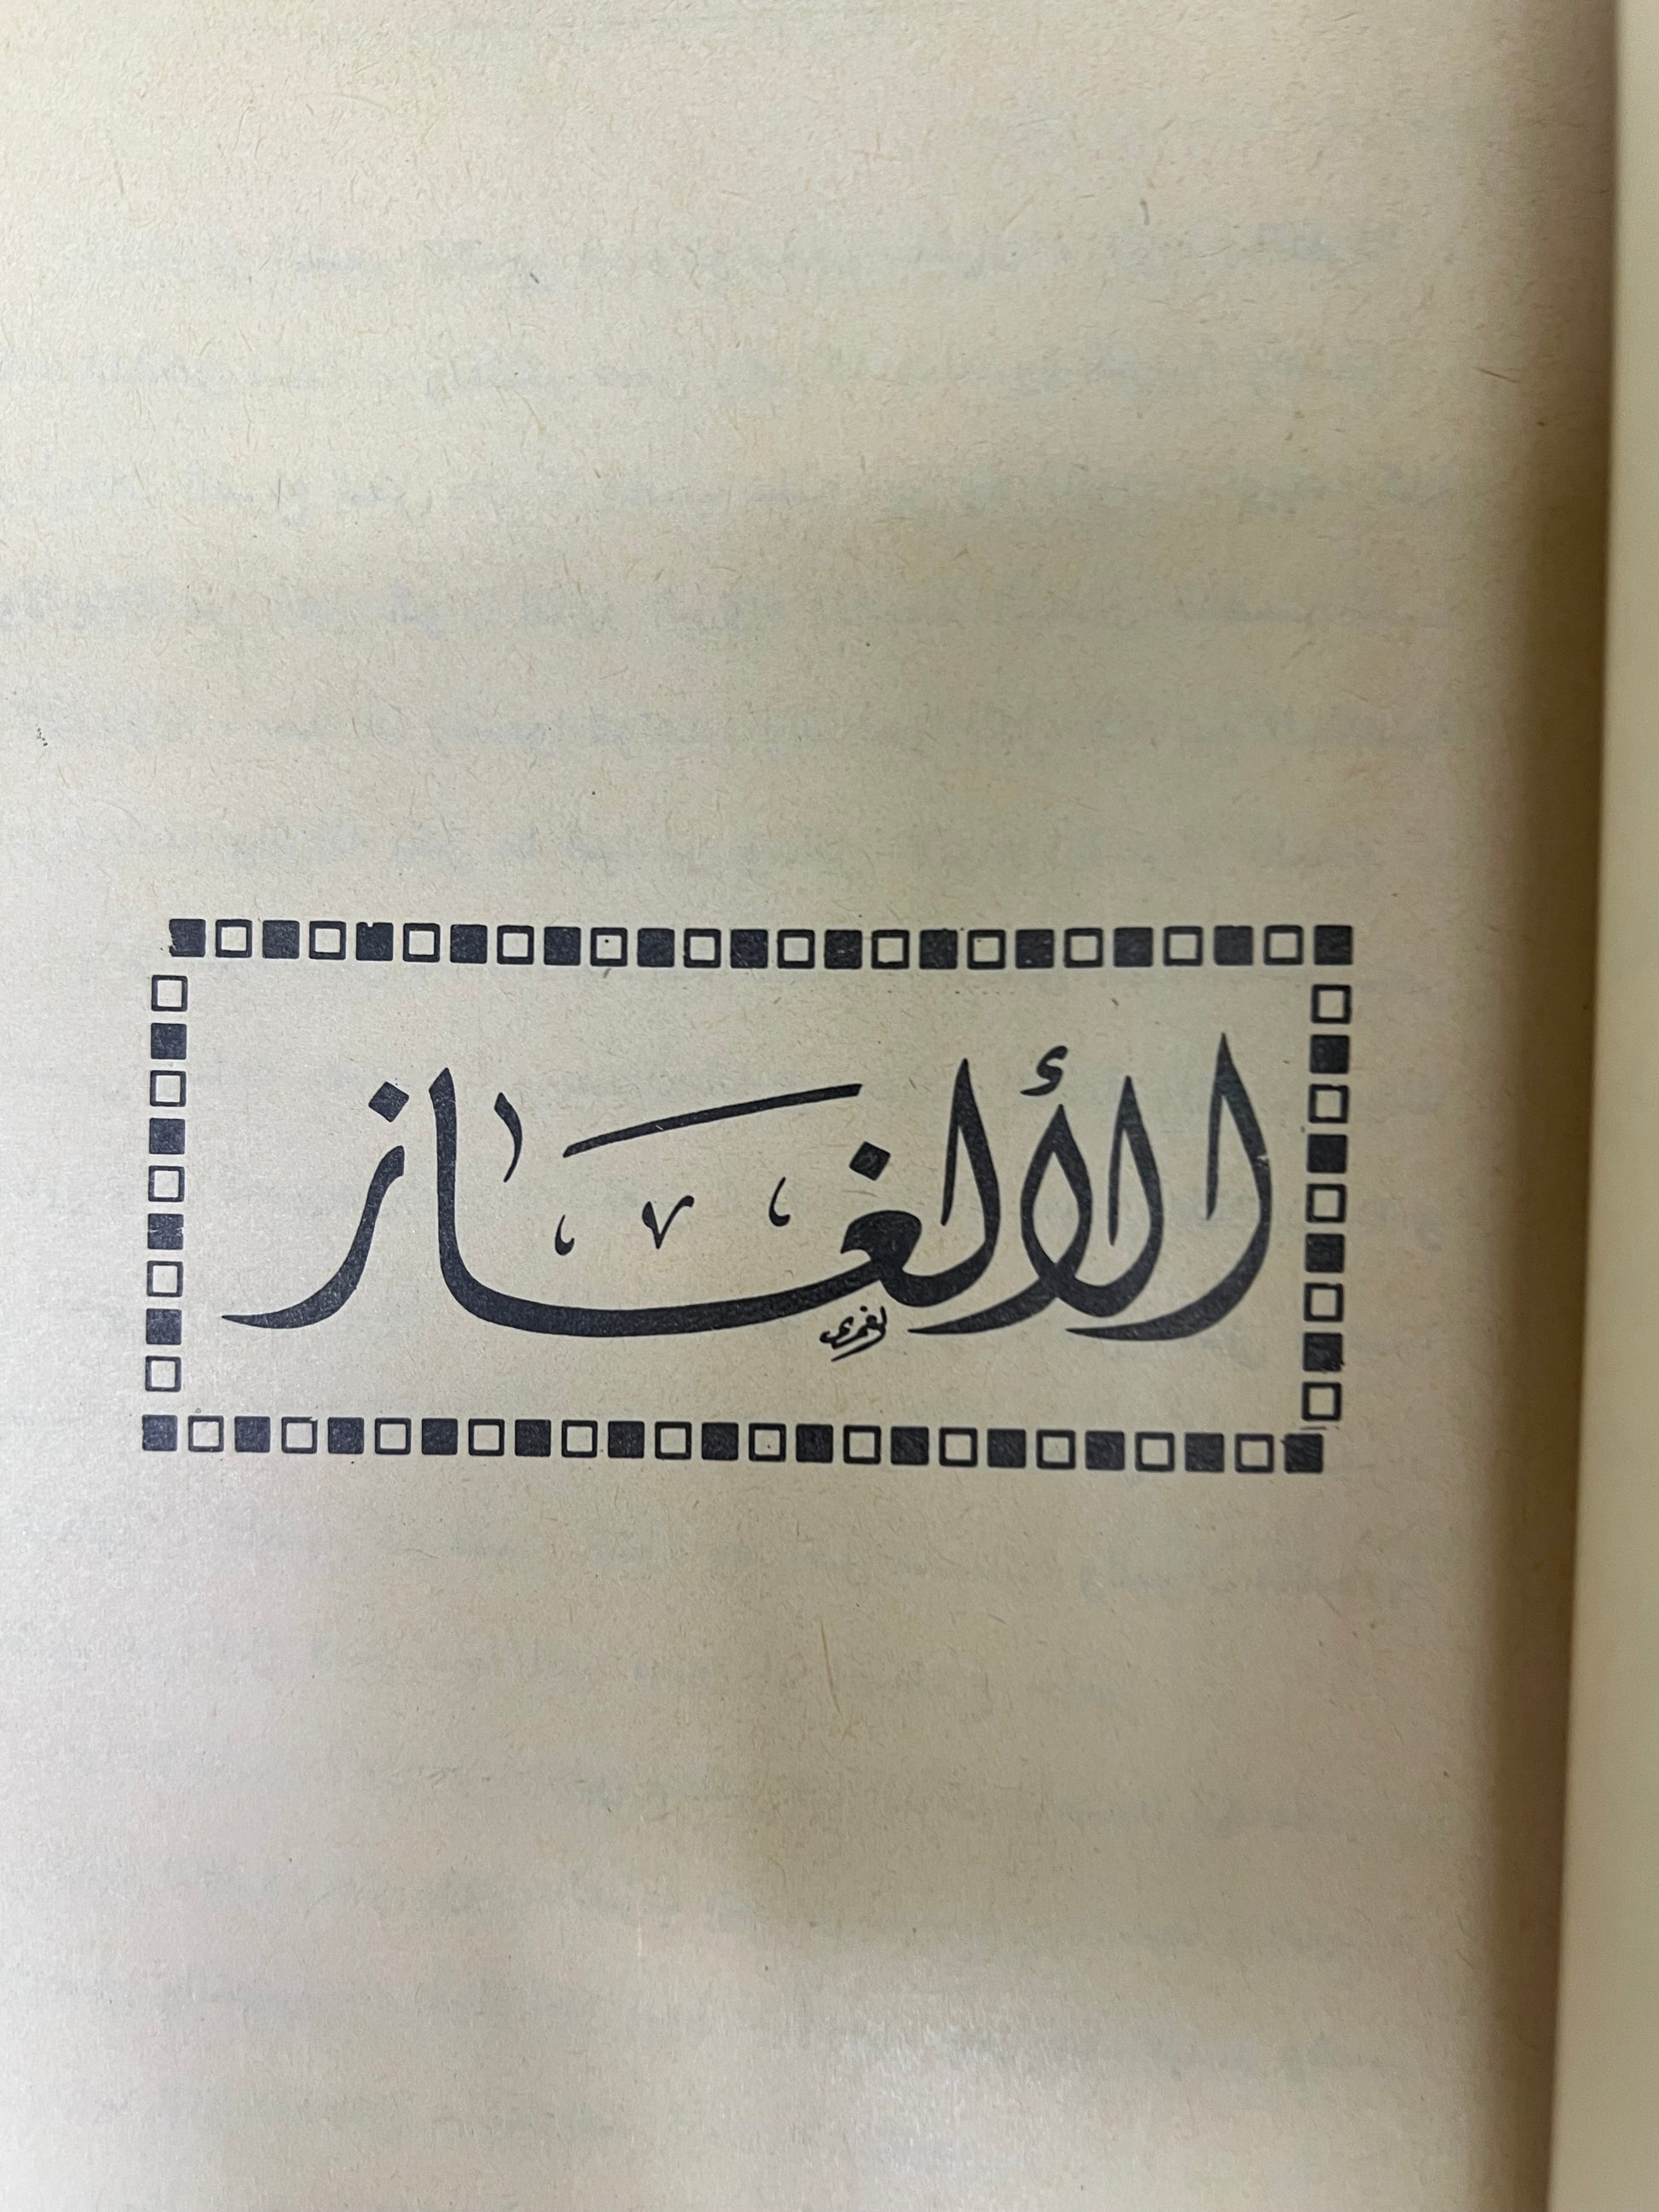 الألغاز